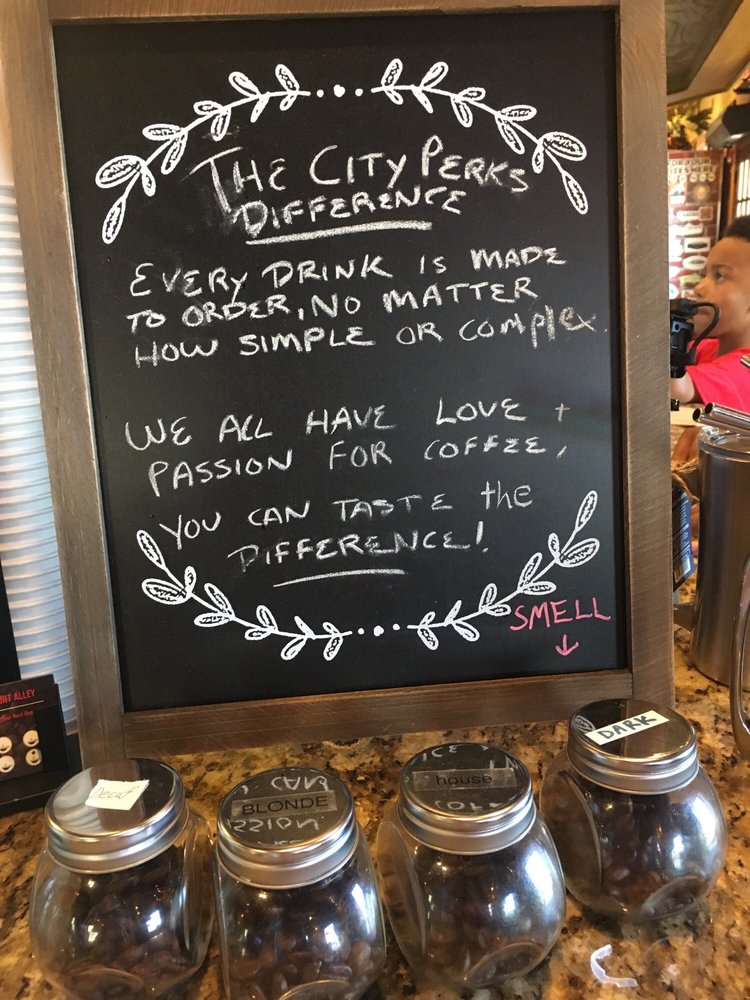 THE CITY PERKS
DIFFERENCE
EVERY DRINK IS MADE
TO ORDER, NO MATTER
HOW SIMPLE OR COMPLEX.
WE ALL HAVE LOVE +
PASSION FOR COFFEE,
YOU CAN TASTE the
DIFFERENCE!
SMELL
Decaf
BLONDE
house
DARK
ALLEY